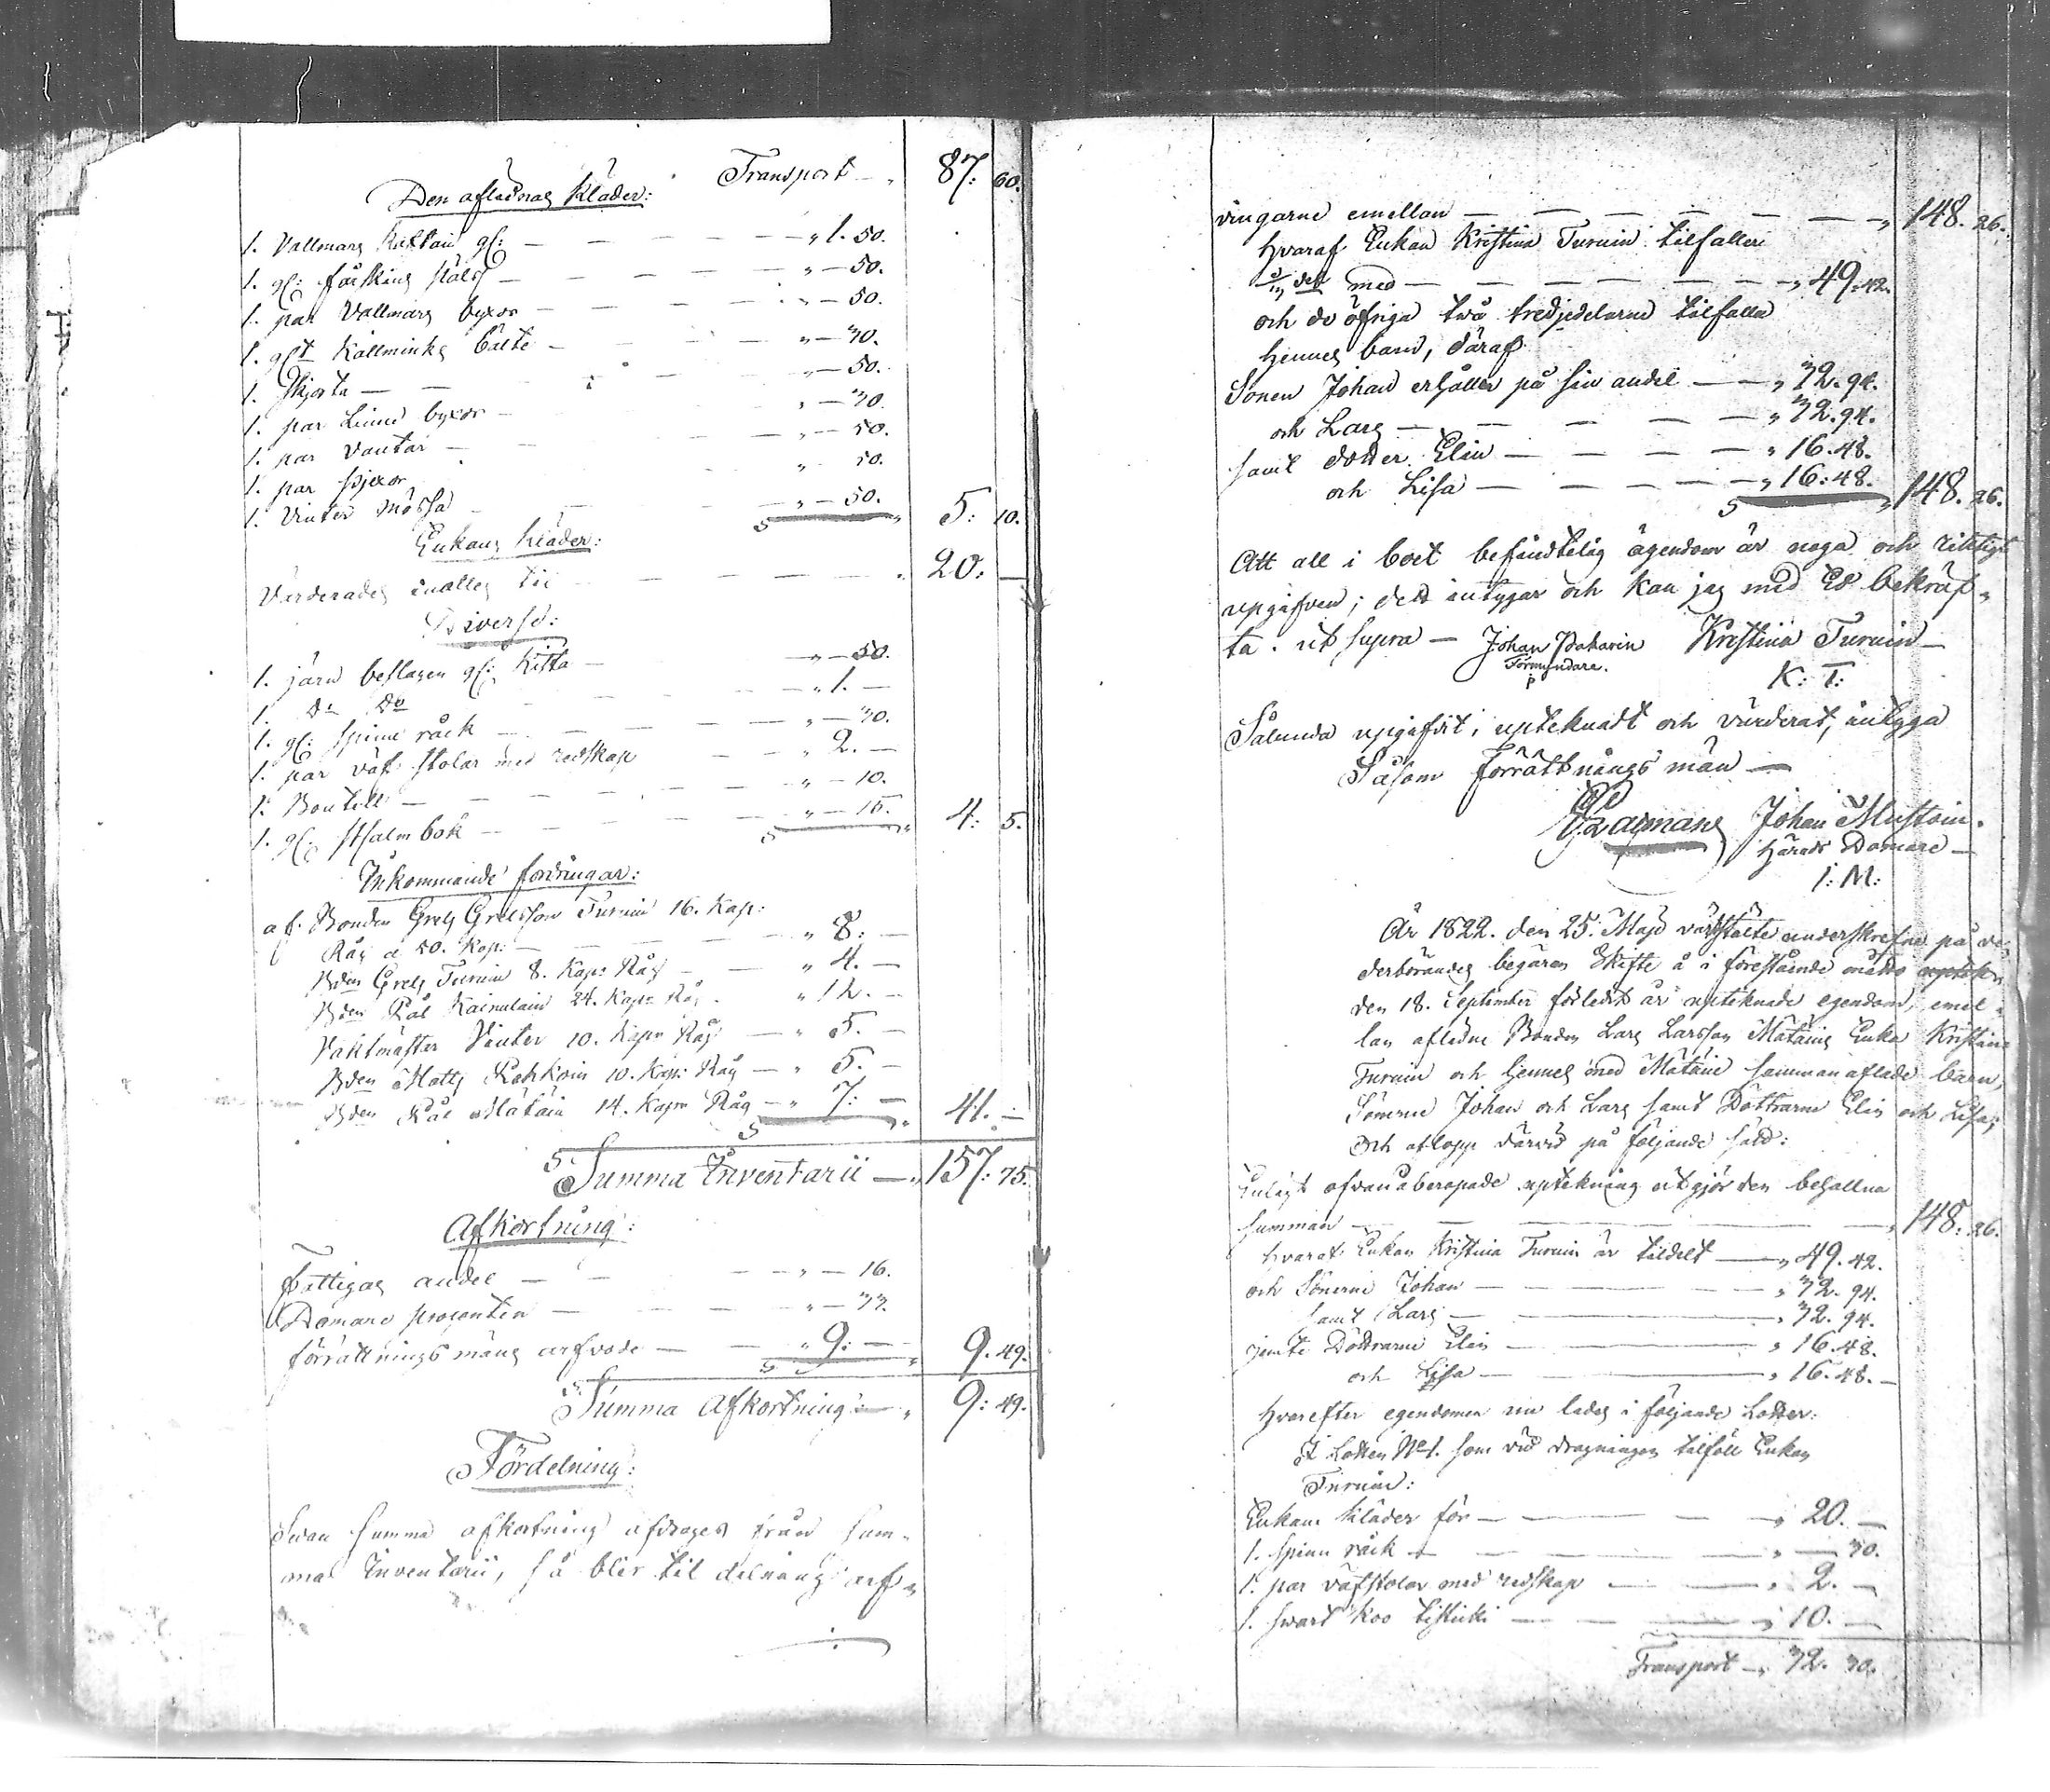 Transport — 87: 60.
Den aflednas Kläder:
1. Vallmars Kaftan gl: — " 1. 50.
1. gl: fårskins päls — " — 50.
1. par Vallmars byxor — " — 50.
1. glt Kallminks bälte — " — 30.
1. Skjorta — " — 50.
1. par Linne byxor — " — 30.
1. par Vantar — " — 50.
1. par Pjexor " 50.
1. Vinter Mössa — " — 50. 5: 10.
Enkans Kläder:
Värderades inalles til — 20: —
Diverse:
1. järn beslagen gl: Kista — " — 50.
1. do do — " 1. —
1. gl: Spinn råck — " — 30.
1. par väf stolar med redskap — " 2. —
1. Boutell — " — 10.
1. gl: Psalm bok — " — 15. 4: 5.
Inkommande fordringar:
af Bonden Grels Grelsson Turuin 16. Kap:
Råg a 50. Kop: — " 8: —
Bden Grels Turuin 8. Kapr Råg — " 4. —
Bden Pål Kainulain 24. Kapr Råg " 12. —
Vaktmäster Vinter 10. Kapr Råg — " 5. —
Bden Matts 10. Kap: Råg — " 5. —
Bden Pål Mätäin 14. Kapr Råg — " 7: — 41. —
Summa Inventarii — " 157: 75.
Afkortning:
Fattigas andel — " — 16.
Domare procenten — " — 33.
förrättnings mäns arfvode — " 9: — 9. 49.
Summa Afkortning — " 9: 49.
Fördelning:
Summa afkortning afdrages från Sum-
ma Inventarii, så blir til delning arf-
vingarne emellan — " 148. 26.
hvaraf Enkan Kristina Turuin tilfaller
1/3 del med — " 49. 42.
och de öfriga två tredjedelarne tilfalla
hennes barn, däraf
Sonen Johan erhåller på sin andel — " 32. 94.
och Lars — " 32. 94.
samt dotter Elin — " 16. 48.
och Lisa — " 16: 48. 148. 26.
Att all i boet befindtelig ägendom är noga och riktigt
upgifven; det intygar och kan jag med Ed bekräf-
ta. ut supra — Johan Kristina Turuin —
Förmyndare. K: T:
Sålunda upgifvit, upteknadt och värderat, intyga
Såsom Förrättnings män —
Johan Mustoin.
Härads Domare —
I: M:
År 1822. den 25: Maji värkstälte underskrefne på ve-
derbörandes begäran Skifte å i förestående
den 18. September förledit år upteknade egendom, emel-
lan aflidne Bonden Lars Larsson Mätäins Enka Kristina
Turuin och hennes med Mätäin sammanaflade barn,
Sönerne Johan och Lars samt Döttrarne Elin och Lisa;
Och aflopp därvid på följande sätt:
Enligt ofvanåberopade uptekning utgjör den behållna
Summan — 148: 26.
hvaraf Enkan Kristina Turuin är tildelt — " 49. 42.
och Sönerne Johan — " 32. 94.
samt Lars — " 32. 94.
jemte Döttrarne Elin — " 16. 48.
och Lisa — " 16. 48. —
hvarefter egendomen nu lades i följande Lotter:
I Lotten No 1. som vid dragningen tilföll Enkan
Turuin:
Enkans Kläder för — " 20. —
1. spinn råck — " — 30.
1. par väfstolar med redskap — " 2. —
1. svart Koo — " 10. —
Transport — " 32. 30.